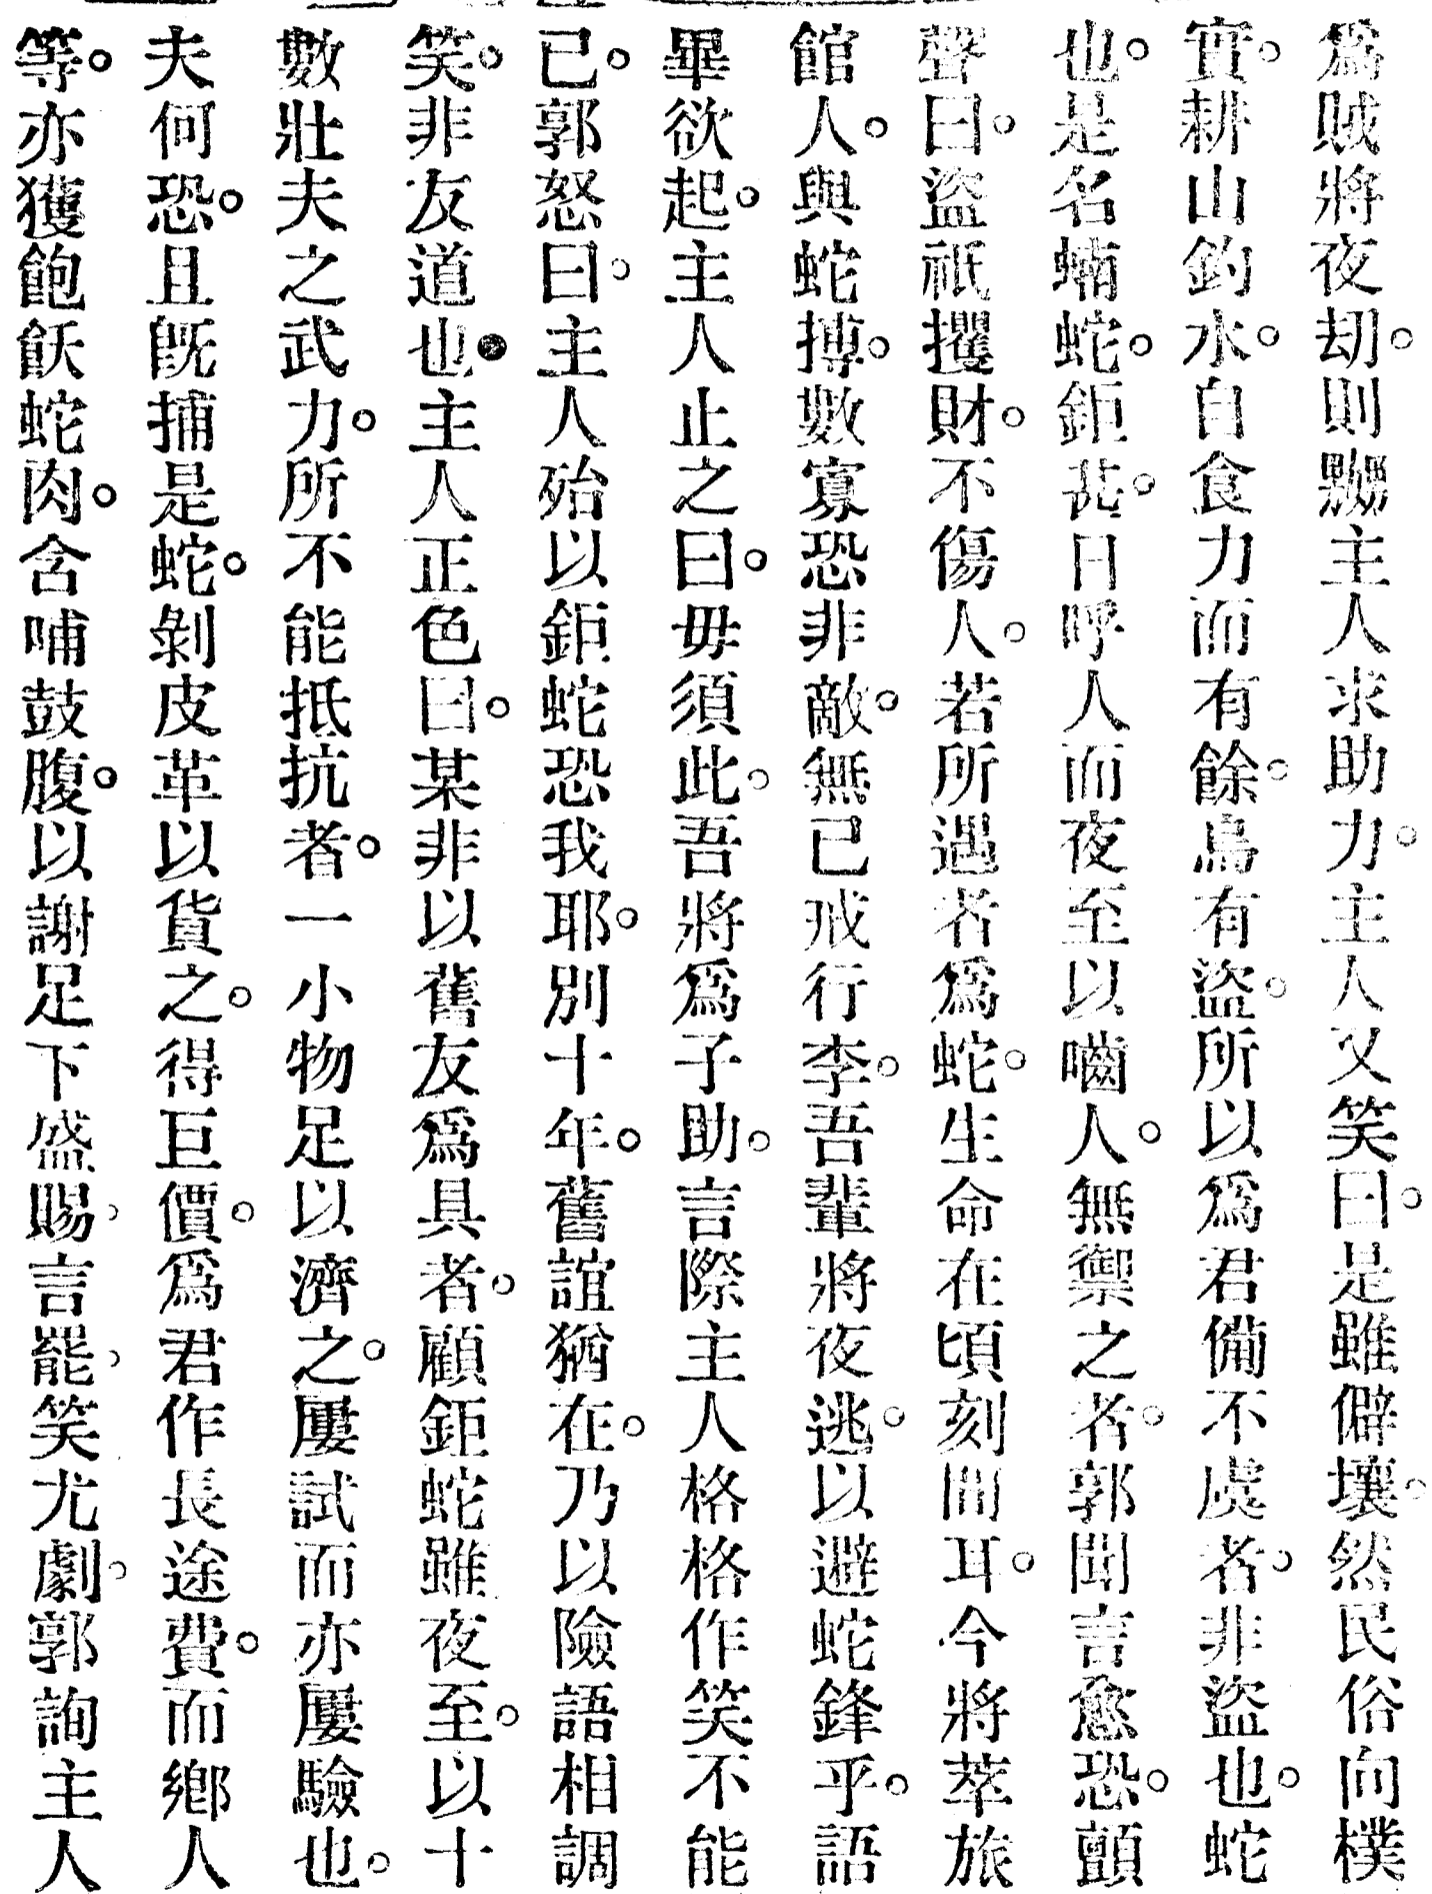 爲賊將夜刧。則嬲主人求助力。主人又笑曰。是雖僻壤。然民俗向樸
實。耕山釣水。自食力而有餘。烏有盜。所以爲君備不虞者。非盜也。蛇
也。是名蝻蛇。鉅甚。日呼人而夜至以嚙人。無禦之者。郭聞言愈恐。顫
聲曰。盜祇攫財。不傷人。若所遇者爲蛇。生命在頃刻間耳。今將萃旅
館人。與蛇搏。數寡恐非敵。無已戒行李。吾輩將夜逃。以避蛇鋒乎。語
畢欲起。主人止之曰。毋須此。吾將爲子助。言際主人格格作笑不能
已。郭怒曰。主人殆以鉅蛇恐我耶。別十年。舊誼猶在。乃以險語相調
笑。非友道也。主人正色曰。某非以舊友爲具者。顧鉅蛇雖夜至。以十
數壯夫之武力。所不能抵抗者。一小物足以濟之。屢試而亦屢驗也。
夫何恐。且旣捕是蛇。剝皮革以貨之。得巨價。爲君作長途費。而鄉人
等。亦獲飽飫蛇肉。含哺鼓腹。以謝足下盛賜。言罷。笑尤劇。郭詢主人